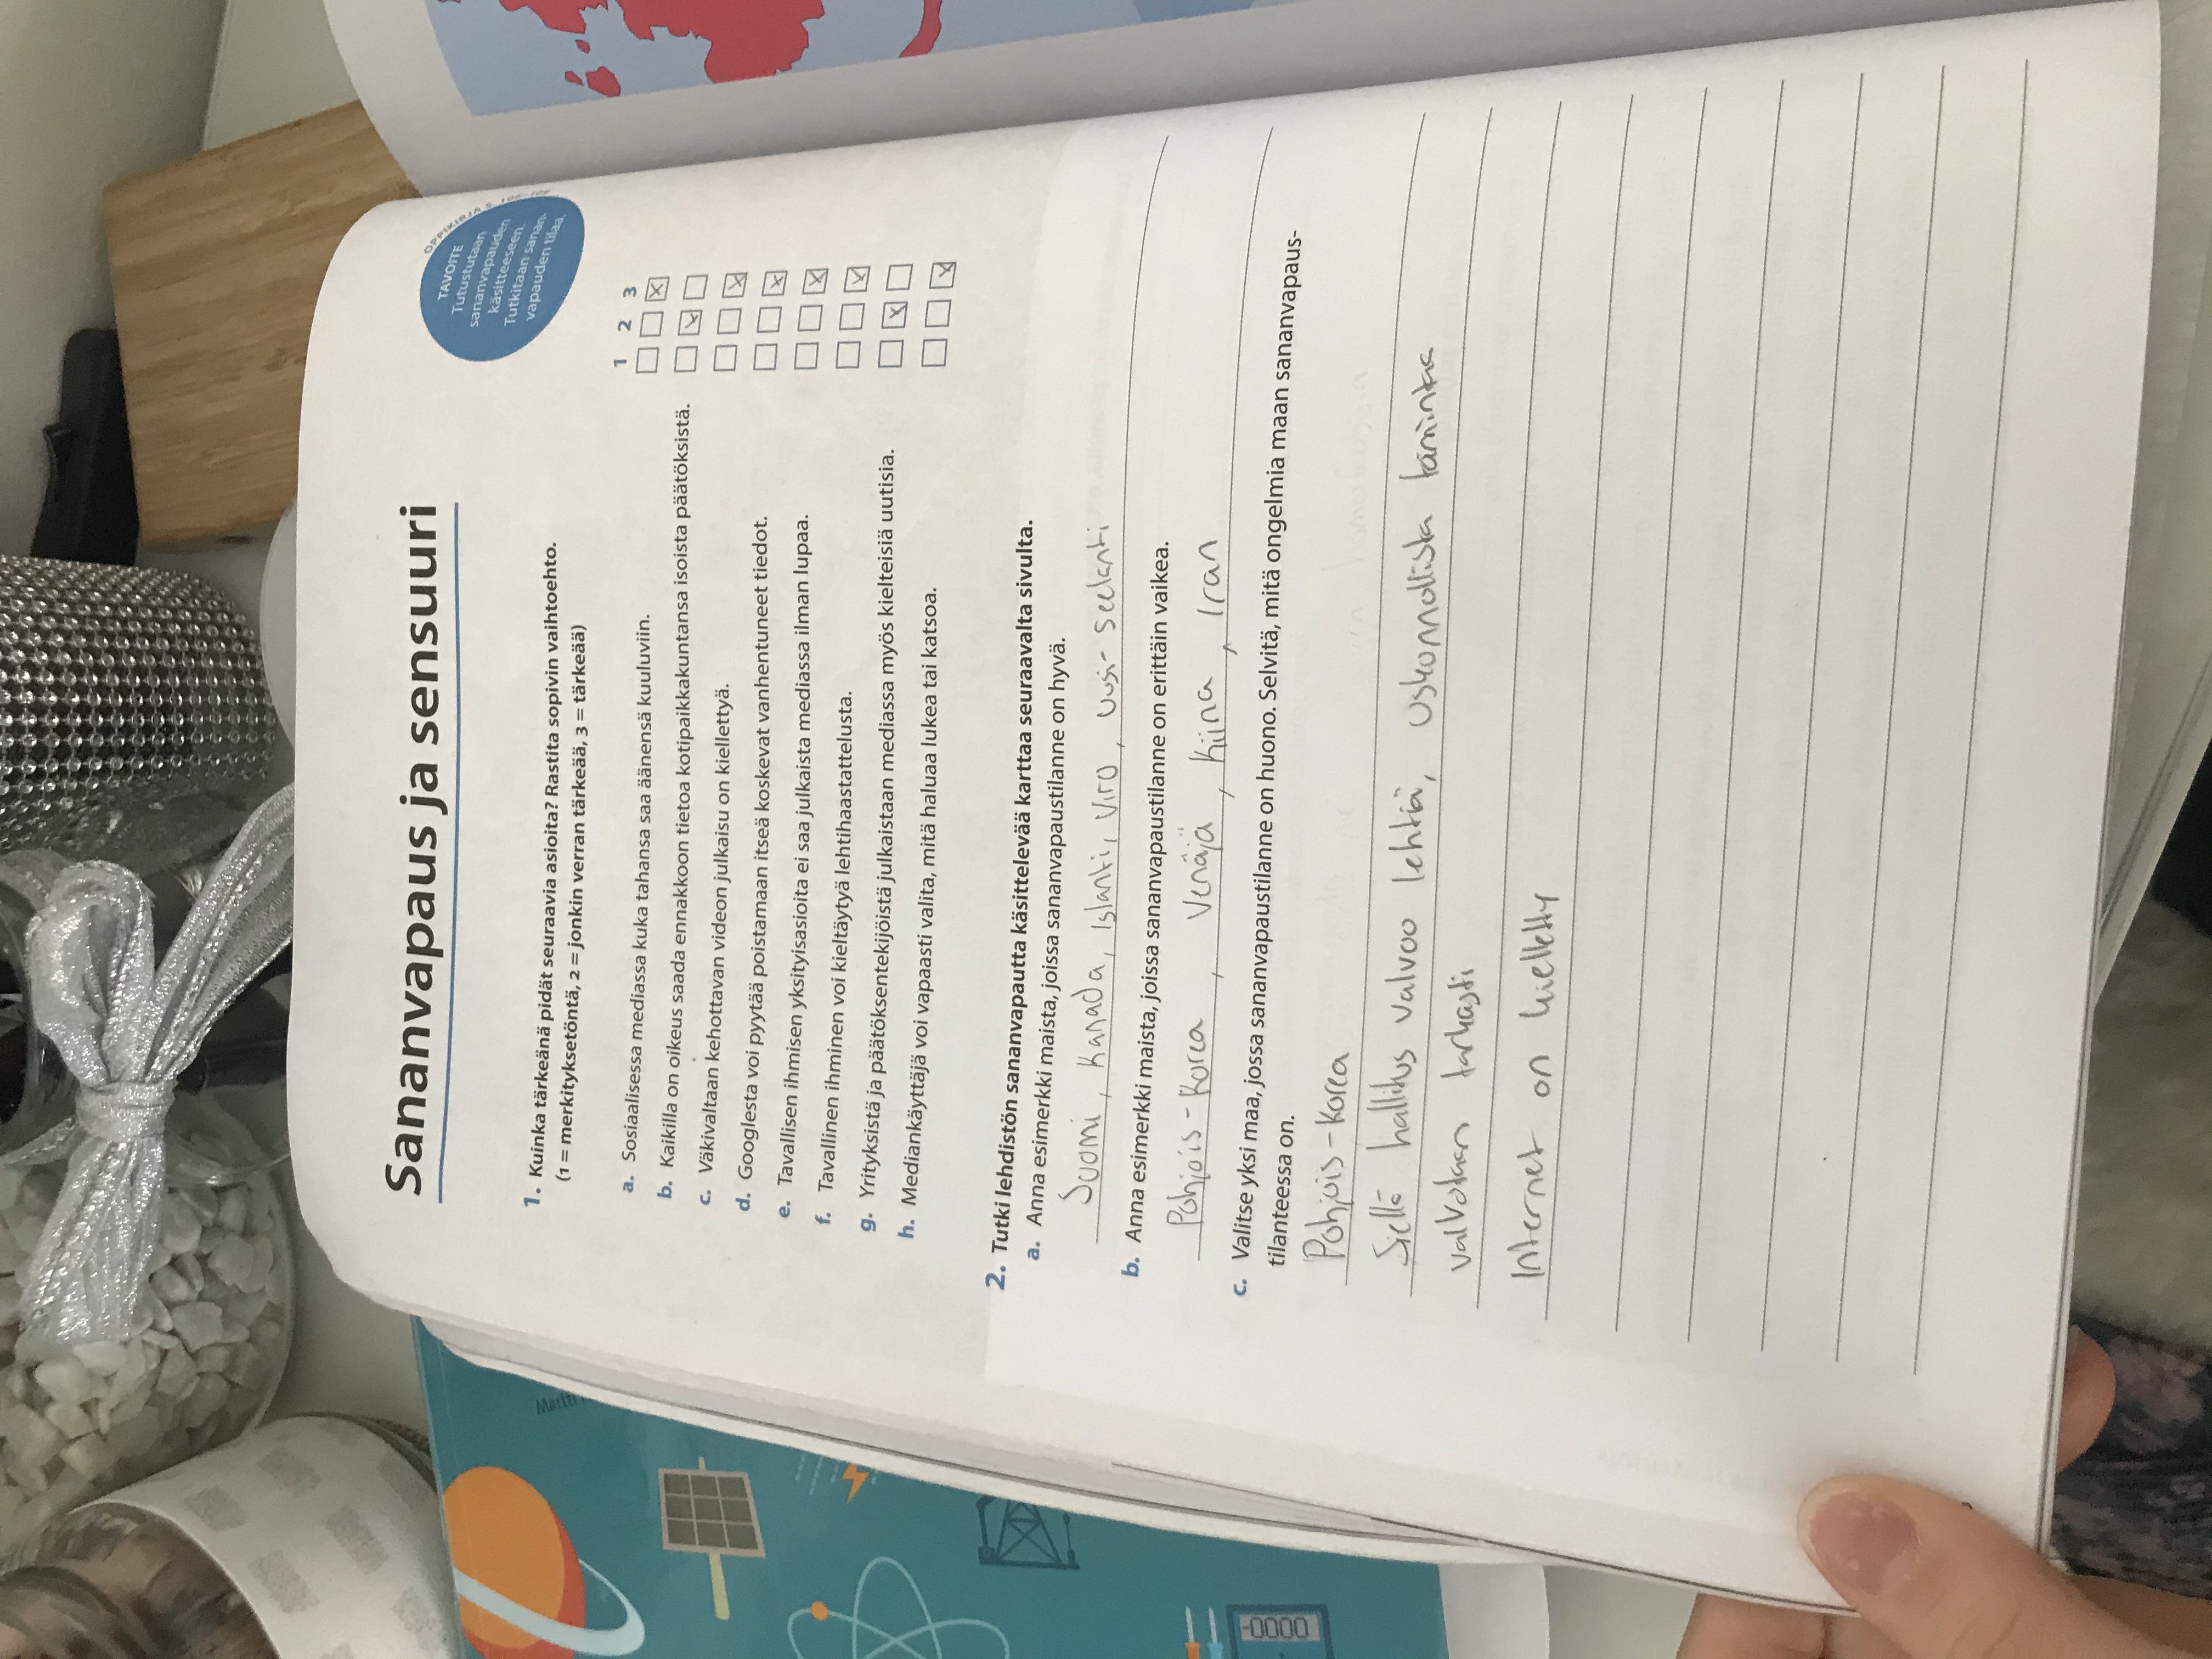 Sananvapaus ja sensuuri
OPPIKIRJA S.
TAVOITE
Tutustutaan
sananvapauden
käsitteeseen.
Tutkitaan sanan-
vapauden tilaa.
1. Kuinka tärkeänä pidät seuraavia asioita? Rastita sopivin vaihtoehto.
(1 = merkityksetöntä, 2 = jonkin verran tärkeää, 3 = tärkeää)
1 2 3
a. Sosiaalisessa mediassa kuka tahansa saa äänensä kuuluviin.
b. Kaikilla on oikeus saada ennakkoon tietoa kotipaikkakuntansa isoista päätöksistä.
c. Väkivaltaan kehottavan videon julkaisu on kiellettyä.
d. Googlesta voi pyytää poistamaan itseä koskevat vanhentuneet tiedot.
e. Tavallisen ihmisen yksityisasioita ei saa julkaista mediassa ilman lupaa.
f. Tavallinen ihminen voi kieltäytyä lehtihaastattelusta.
g. Yrityksistä ja päätöksentekijöistä julkaistaan mediassa myös kielteisiä uutisia.
h. Mediankäyttäjä voi vapaasti valita, mitä haluaa lukea tai katsoa.
2. Tutki lehdistön sananvapautta käsittelevää karttaa seuraavalta sivulta.
a. Anna esimerkki maista, joissa sananvapaustilanne on hyvä.
Suomi, Kanada, Islanti, Viro, Uusi-Seelanti
b. Anna esimerkki maista, joissa sananvapaustilanne on erittäin vaikea.
Pohjois-Korea, Venäjä, Kiina, Iran
c. Valitse yksi maa, jossa sananvapaustilanne on huono. Selvitä, mitä ongelmia maan sananvapaus-
tilanteessa on.
Pohjois-Korea
Siellä hallitus valvoo lehtiä, uskonnollista toimintaa
valvotaan tarkasti
Internet on kielletty
Martti
-0000